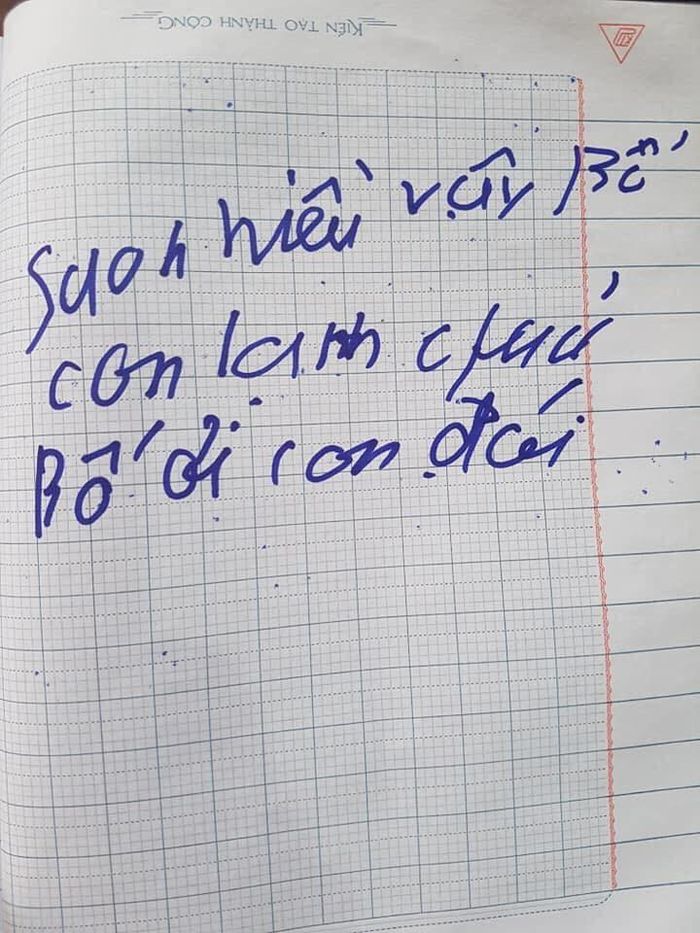 KIẾN TẠO THÀNH CÔNG
Sao nhiều vậy Bố
con lạnh quá
Bố ơi con đói